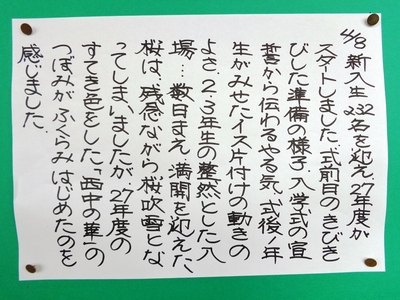 4/8 新入生232名を迎え、27年度が
スタートしました。式前日のきびき
びした準備の様子、入学式の宣
誓から伝わるやる気、式後1年
生がみせたイス片付けの動きの
よさ、2・3年生の整然とした入
場…数日まえ満開を迎えた
桜は、残念ながら桜吹雪とな
ってしまいましたが、27年度の
すてき色をした「西中の華」の
つぼみがふくらみはじめたのを
感じました。